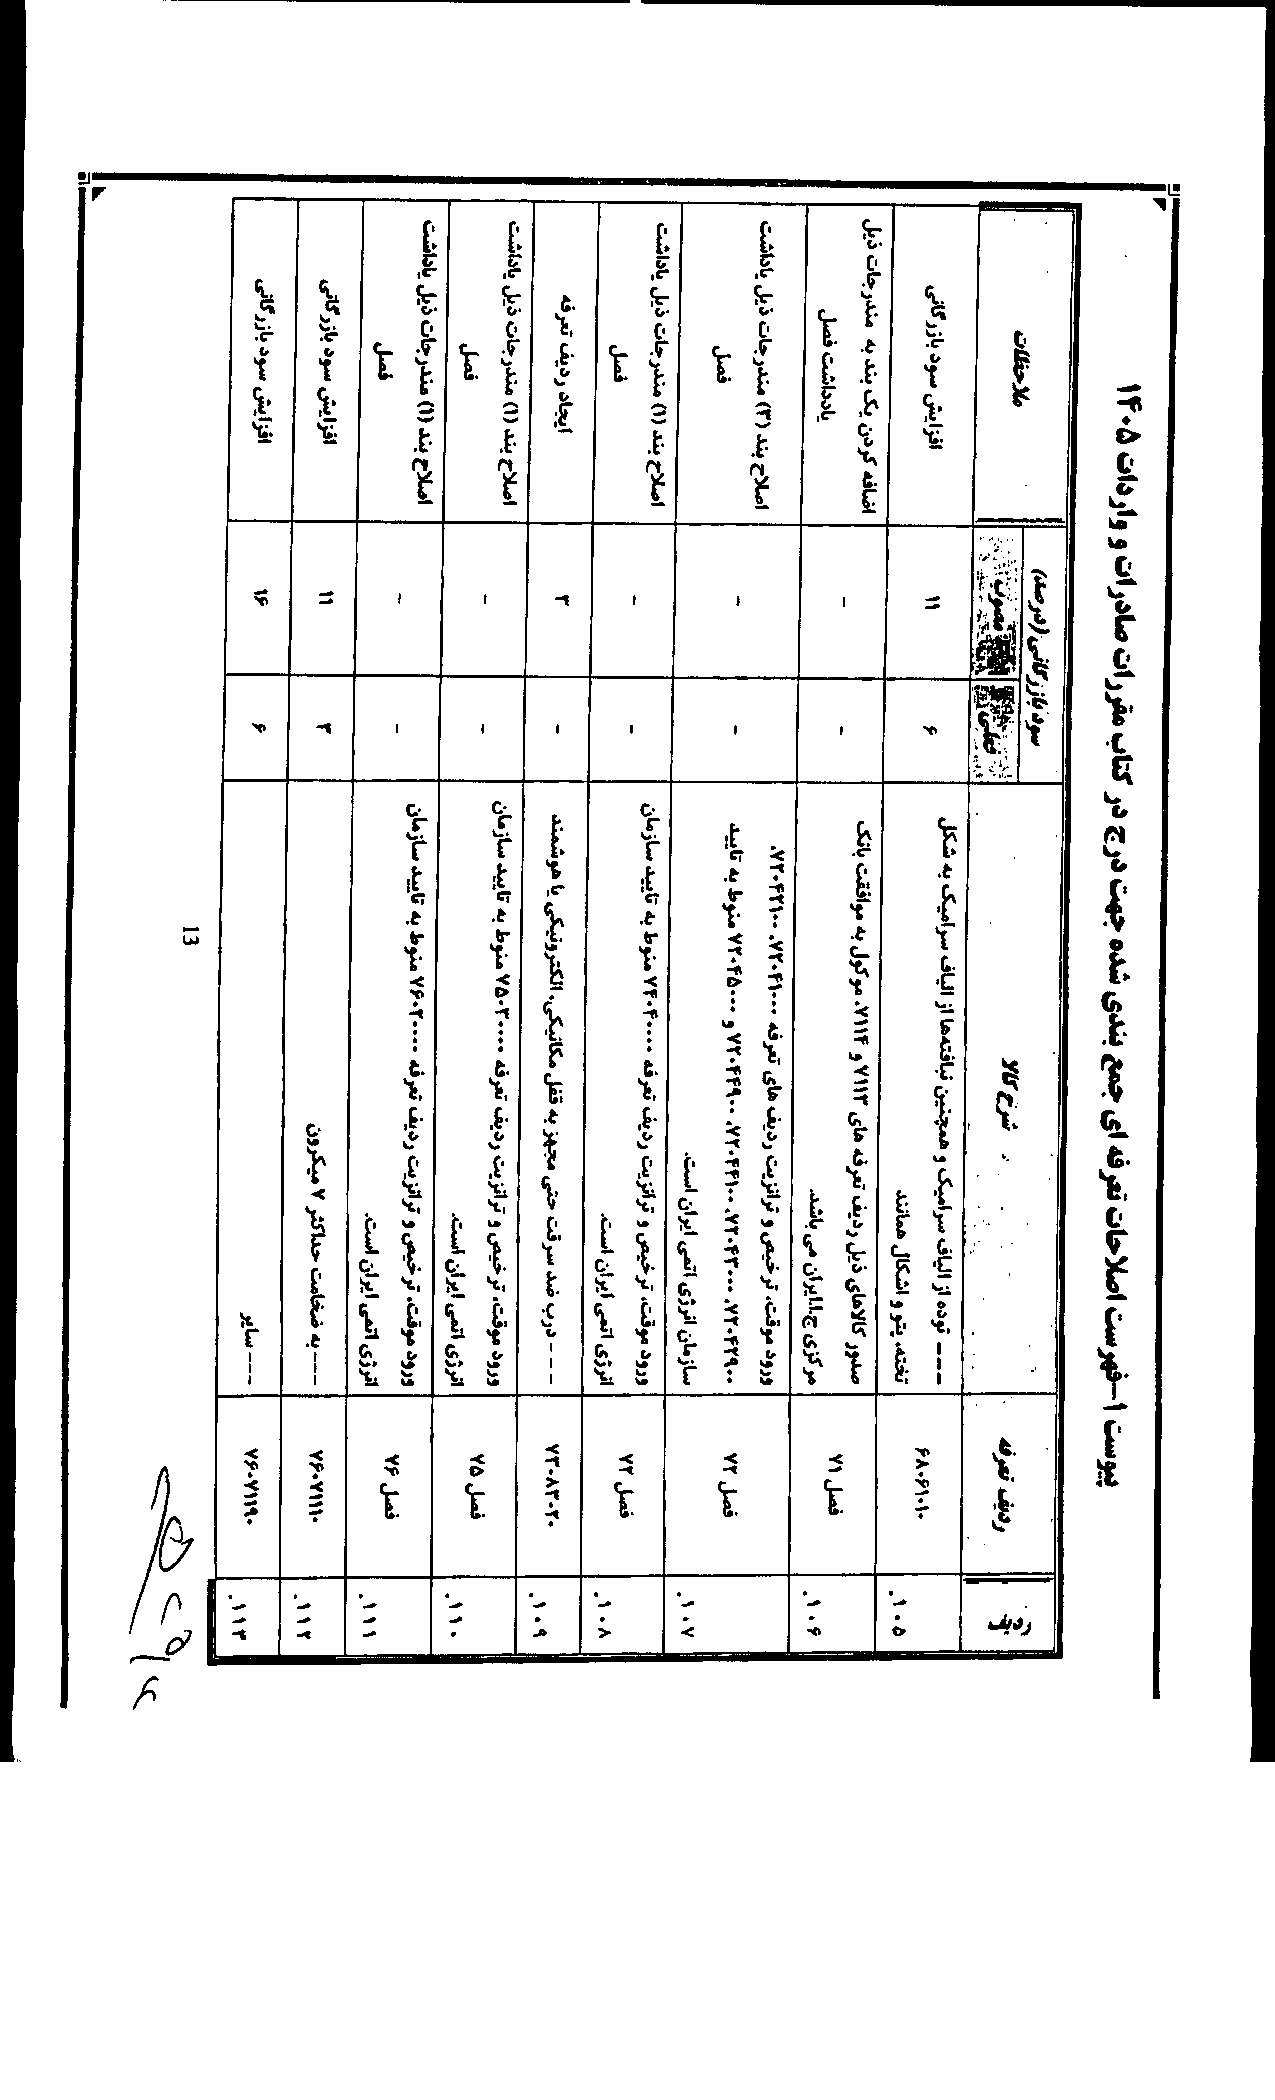 پیوست ۱-فهرست اصلاحات تعرفه ای جمع بندی شده جهت درج در کتاب مقررات صادرات و واردات ۱۴۰۵
ردیف
ردیف تعرفه
شرح کالا
سود بازرگانی (درصد)
فعلی
مصوب
ملاحظات
۱۰۵.
۶۸۰۶۱۰۱۰
---- توده از الیاف سرامیک و همچنین نبافته‌ها از الیاف سرامیک به شکل
تخته، پتو و اشکال همانند
۶
۱۱
افزایش سود بازرگانی
۱۰۶.
فصل ۷۱
صدور کالاهای ذیل ردیف تعرفه های ۷۱۱۳ و ۷۱۱۴، موکول به موافقت بانک
مرکزی ج.ا.ایران می باشد.
-
-
اضافه کردن یک بند به مندرجات ذیل
یادداشت فصل
۱۰۷.
فصل ۷۲
ورود موقت، ترخیص و ترانزیت ردیف های تعرفه ۷۲۰۴۱۰۰۰، ۷۲۰۴۲۱۰۰،
۷۲۰۴۲۹۰۰، ۷۲۰۴۳۰۰۰، ۷۲۰۴۴۱۰۰، ۷۲۰۴۴۹۰۰ و ۷۲۰۴۵۰۰۰ منوط به تایید
سازمان انرژی اتمی ایران است.
-
-
اصلاح بند (۳) مندرجات ذیل یاداشت
فصل
۱۰۸.
ورود موقت، ترخیص و ترانزیت ردیف تعرفه ۷۴۰۴۰۰۰۰ منوط به تایید سازمان
انرژی اتمی ایران است.
-
-
اصلاح بند (۱) مندرجات ذیل یاداشت
فصل
۱۰۹.
۷۳۰۸۳۰۲۰
--- درب ضد سرقت حتی مجهز به قفل مکانیکی، الکترونیکی یا هوشمند
-
۳
ایجاد ردیف تعرفه
۱۱۰.
فصل ۷۵
ورود موقت، ترخیص و ترانزیت ردیف تعرفه ۷۵۰۳۰۰۰۰ منوط به تایید سازمان
انرژی اتمی ایران است.
-
-
اصلاح بند (۱) مندرجات ذیل یاداشت
فصل
۱۱۱.
فصل ۷۶
ورود موقت، ترخیص و ترانزیت ردیف تعرفه ۷۶۰۲۰۰۰۰ منوط به تایید سازمان
انرژی اتمی ایران است.
-
-
اصلاح بند (۱) مندرجات ذیل یاداشت
فصل
۱۱۲.
۷۶۰۷۱۱۱۰
---- به ضخامت حداکثر ۷ میکرون
۳
۱۱
افزایش سود بازرگانی
۱۱۳.
۷۶۰۷۱۱۹۰
---- سایر
۶
۱۶
افزایش سود بازرگانی
13